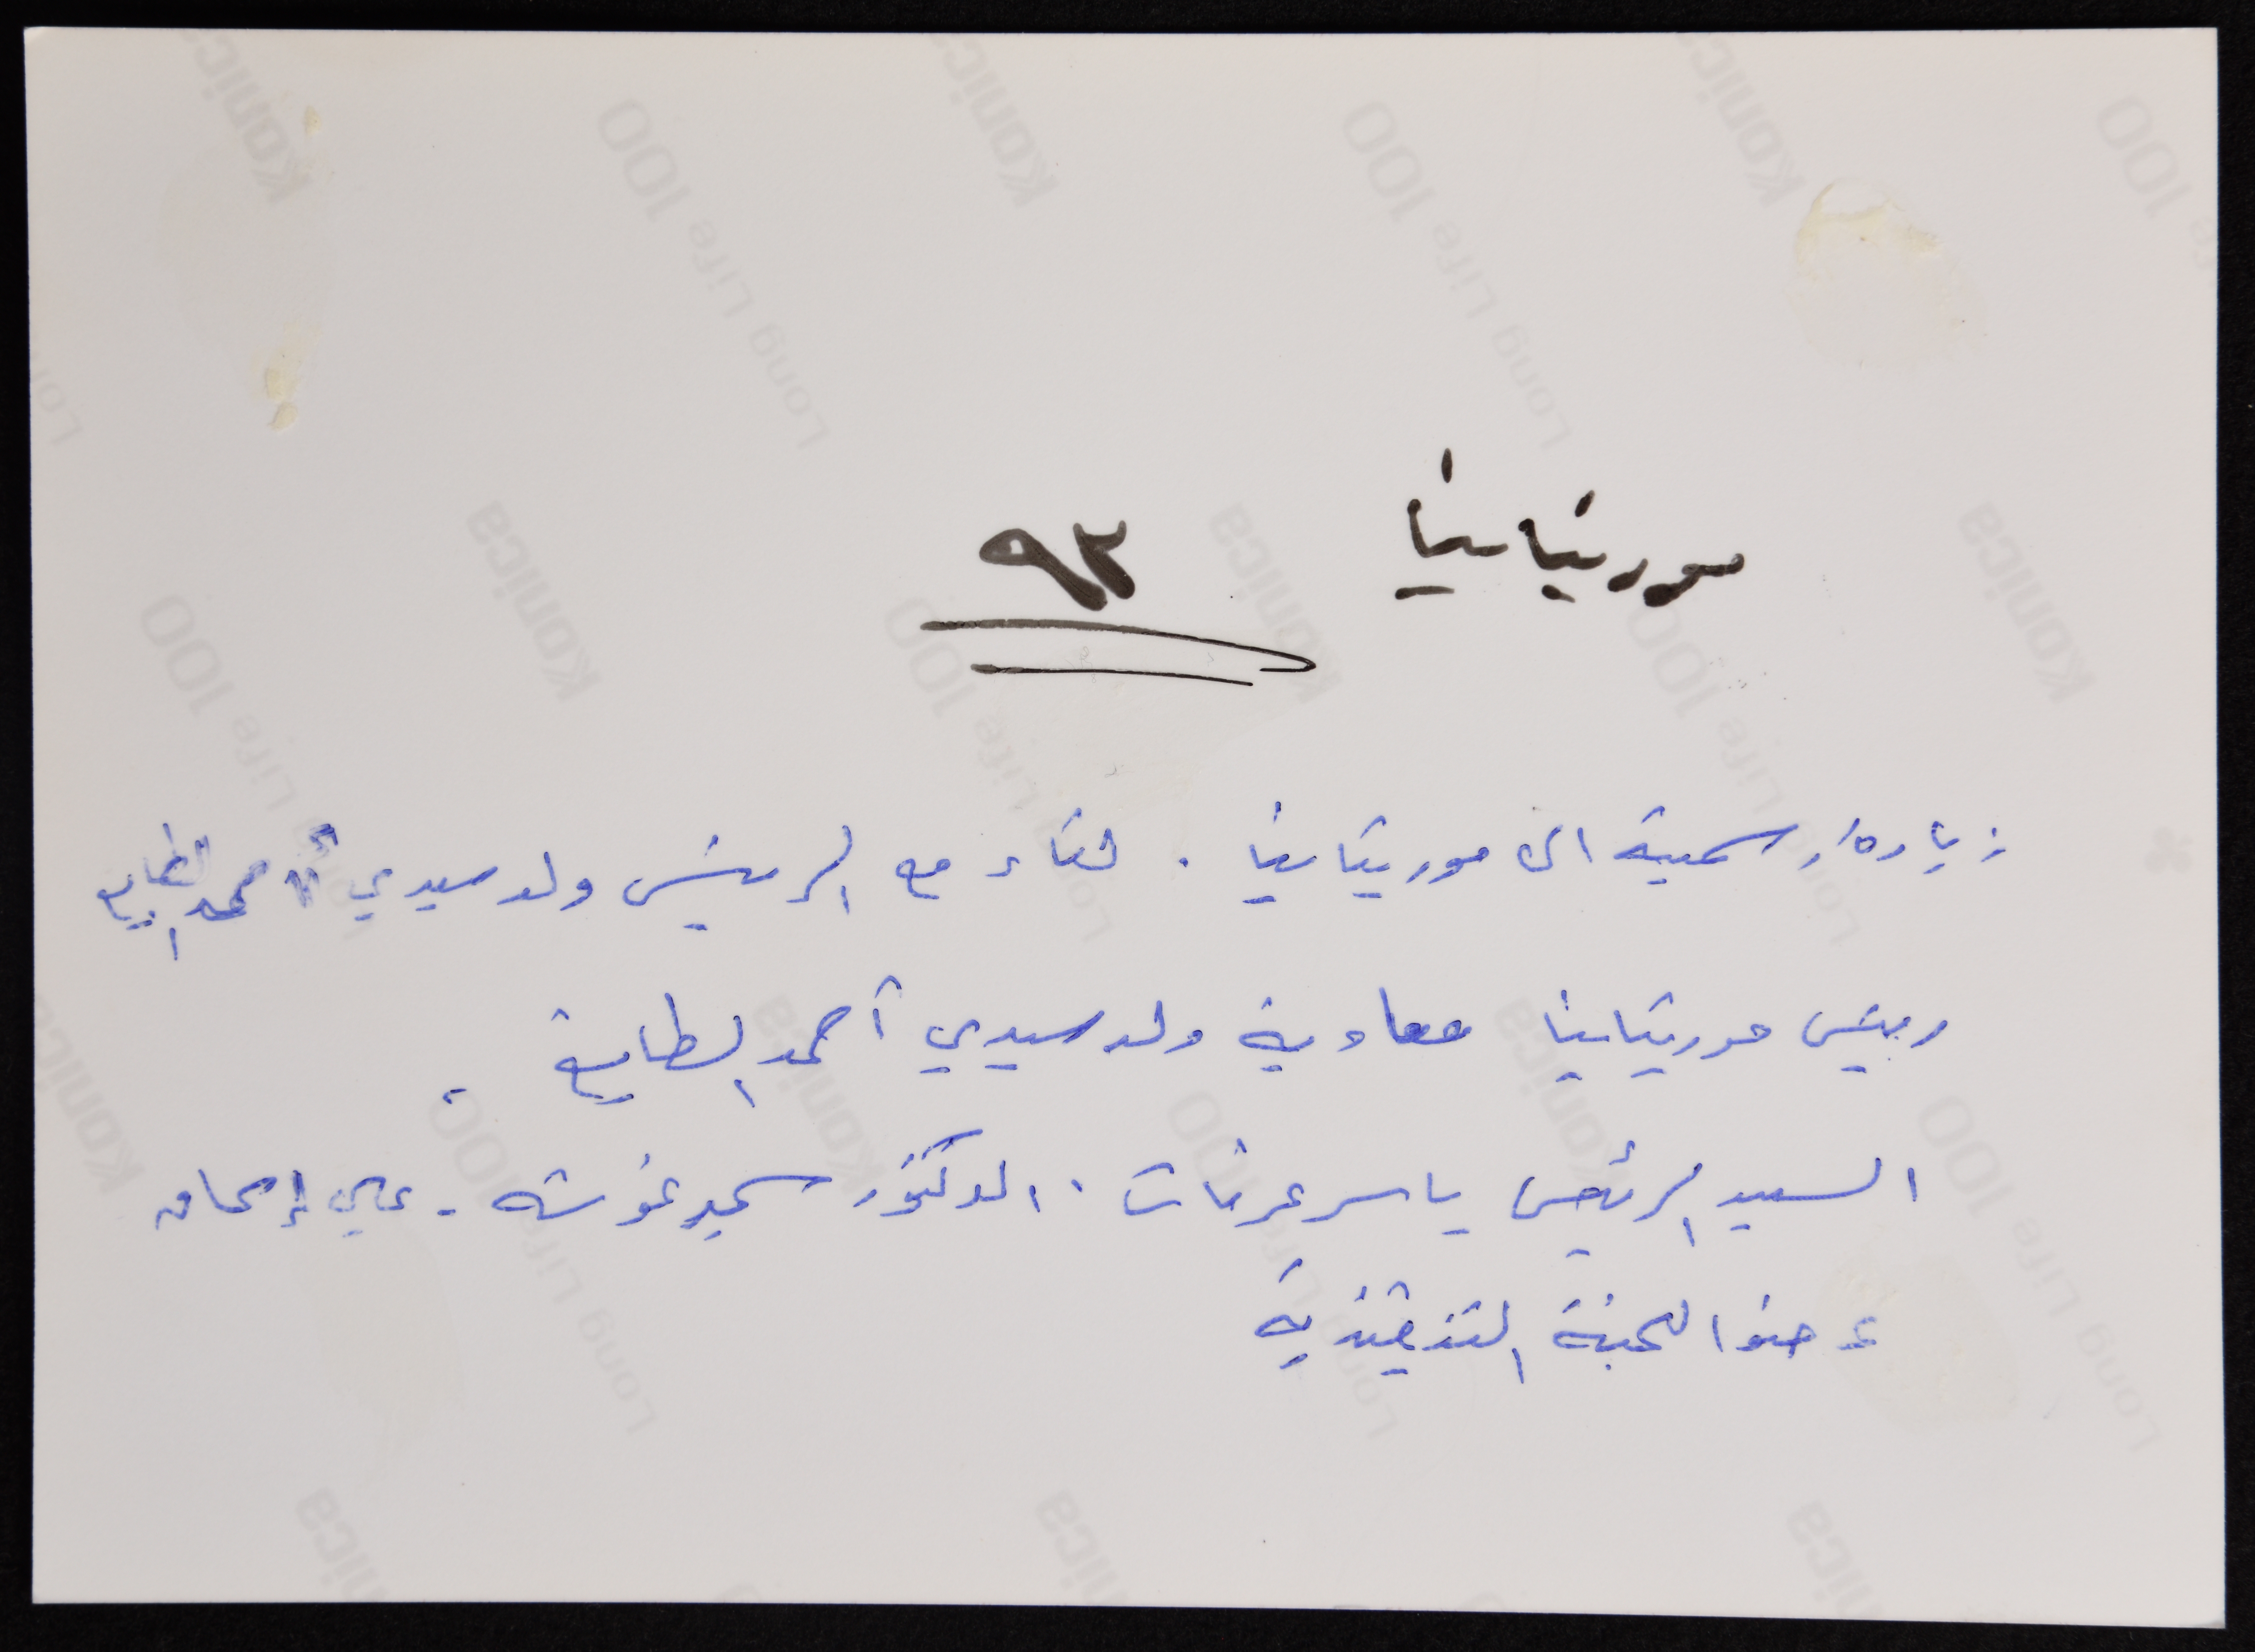 موريتانيا ٩٣
زيارة رسمية الى موريتانيا . لقاء مع الرئيس ولد سيدي أحمد الطايع
رئيس موريتانيا معاوية ولد سيدي أحمد الطايع -
السيد الرئيس ياسر عرفات . الدكتور سمير غوشة - علي إسحاق
عضوا اللجنة التنفيذية
Konica
Long Life 100